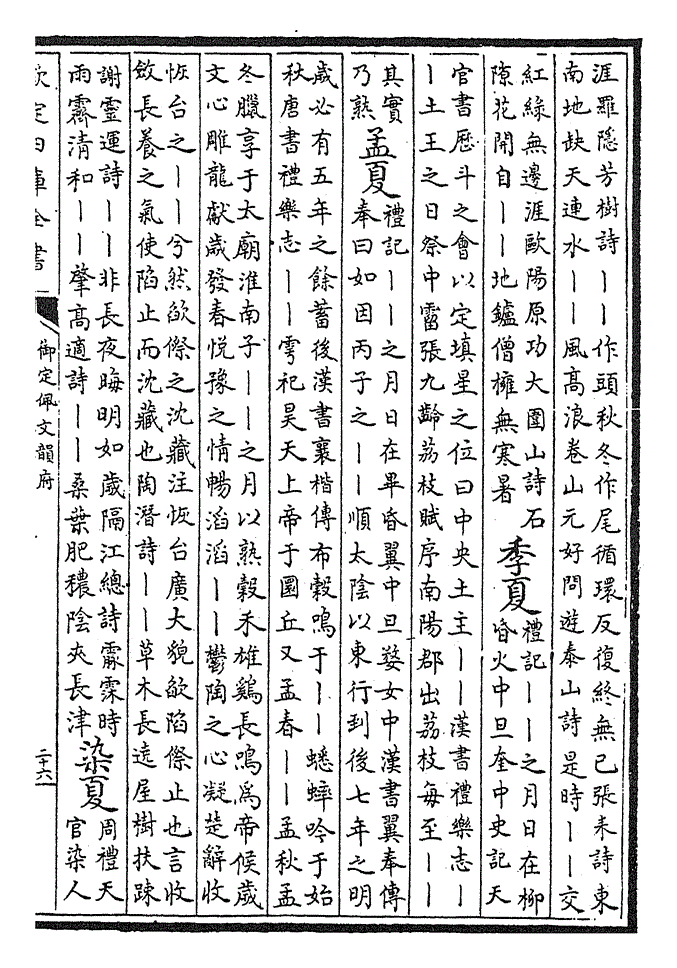 涯羅隱芳樹詩丨丨作頭秋冬作尾循環反復終無已張耒詩東
南地缺天連水丨丨風髙浪卷山元好問遊泰山詩是時丨丨交
紅綠無邊涯歐陽原功大圍山詩石
隙花開自丨丨地鑪僧擁無寒暑
季夏
禮記丨丨之月日在柳
昏火中旦奎中史記天
官書厯斗之會以定填星之位曰中央土主丨丨漢書禮樂志丨
丨土王之日祭中霤張九齡荔枝賦序南陽郡出荔枝每至丨丨
其實
乃熟
孟夏
禮記丨丨之月日在畢昏翼中旦婺女中漢書翼奉傳
奉曰如因丙子之丨丨順太陰以東行到後七年之明
歲必有五年之餘蓄後漢書襄楷傳布穀鳴于丨丨蟋蟀吟于始
秋唐書禮樂志丨丨雩祀昊天上帝于圜丘又孟春丨丨孟秋孟
冬臘享于太廟淮南子丨丨之月以熟穀禾雄鷄長鳴爲帝候歲
文心雕龍獻歲發春悅豫之情暢滔滔丨丨鬱陶之心凝楚辭收
恢台之丨丨兮然欿傺之沈藏注恢台廣大貌欿陷傺止也言收
斂長養之氣使陷止而沈藏也陶潛詩丨丨草木長遶屋樹扶踈
謝靈運詩丨丨非長夜晦明如歲隔江總詩霢霂時
雨霽清和丨丨肇髙適詩丨丨桑葉肥穠陰夾長津
染夏
周禮天
官染人
欽定四庫全書
御定佩文韻府
二十六